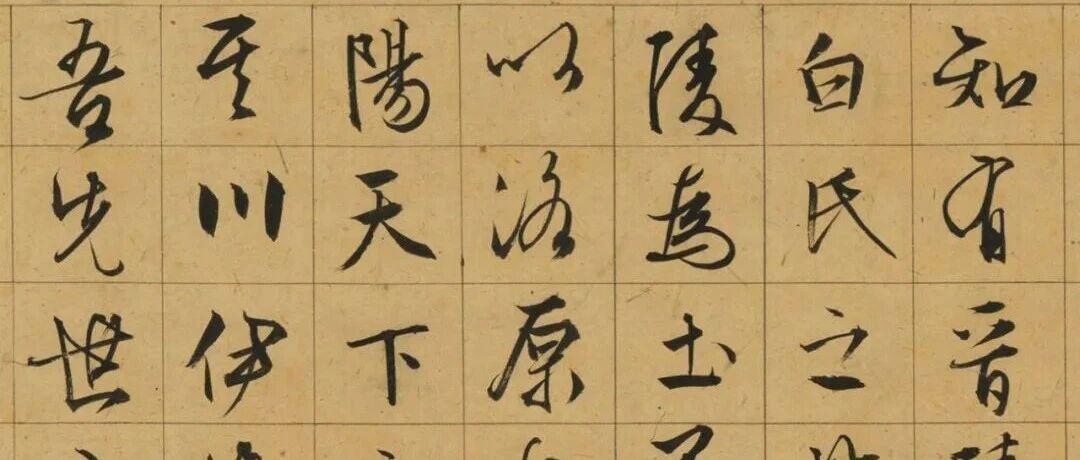 知有晉
白氏之
陵為土
以洛原
陽天下
其川伊
吾先世